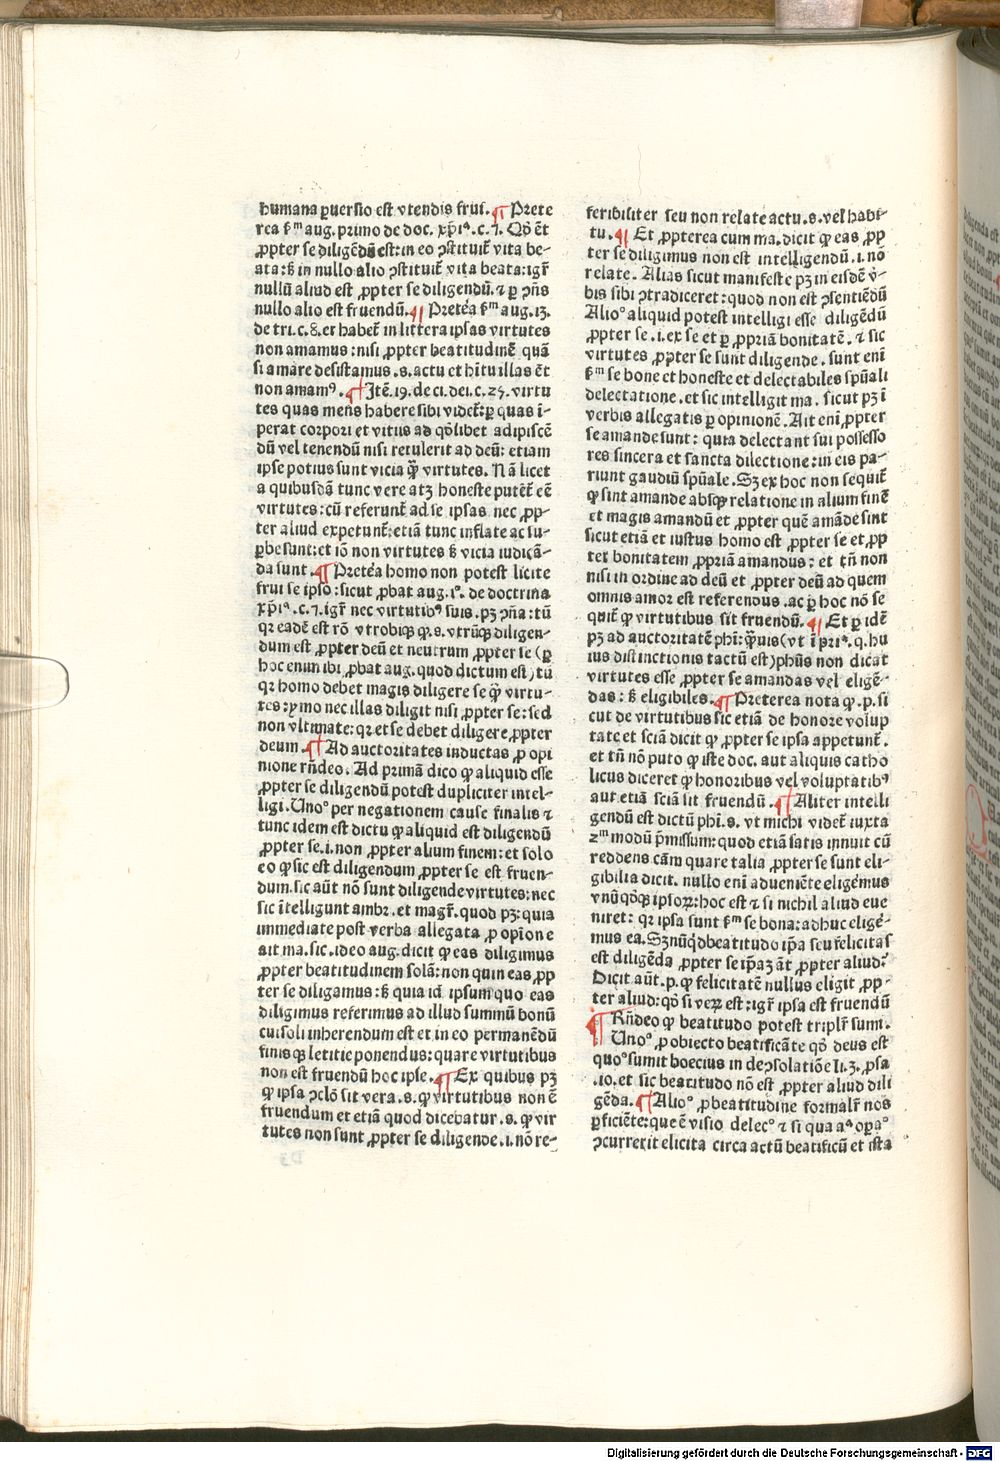 humana ꝑuersio est vtendis frui. ¶ Prete
rea ẜm aug. primo de doc. xp̄iª. c. 7. Qđ ēt
ꝓpter se diligēdū est: in eo ꝯstituit᷑ vita be-
ata: sꝫ in nullo alio ꝯstituit᷑ vita beata: igr̄
nullū aliud est ꝓpter se diligendū. ⁊ ꝑ ꝯn̄s
nullo alio est fruendū. ¶ Pretēa ẜm aug. 13.
de tri. c. 8. et habet᷑ in littera ipsas virtutes
non amamus: nisi ꝓpter beatitudinē quā
si amare desistamus .s. actu et hītu illas ēt
non amamꝰ. ¶ Jtē. 19. de ci. dei. c. 25. virtu
tes quas mens habere sibi videt᷑: ꝑ quas ī-
perat corpori et vitiis ad qđlibet adipiscē
dū vel tenendū nisi retulerit ad deū: etiam
ipse potius sunt vicia qꝫ̄ virtutes. Nā licet
a quibusdā tunc vere atqꝫ honeste putēt᷑ eē
virtutes: cū referunt᷑ ad se ipsas nec ꝓp-
ter aliud expetunt᷑: etiā tunc inflate ac su-
ꝑbe sunt: et iō non virtutes sꝫ vicia iudicā-
da sunt. ¶ Pretēa homo non potest licite
frui se ipso: sicut ꝓbat aug. 1º. de doctrina
xp̄iª. c. 7. igr̄ nec virtutibꝰ suis. pꝫ ꝯn̄a: tū
qꝛ eadē est rō vtrobiqꝫ qꝛ .s. vtrūqꝫ diligen-
dum est ꝓpter deū et neutrum ꝓpter se (ꝑ
hoc enim ibi ꝓbat aug. quod dictum est) tū
qꝛ homo debet magis diligere se qꝫ̄ virtu-
tes: ymo nec illas diligit nisi ꝓpter se: sed
non vltimate: qꝛ et se debet diligere ꝓpter
deum. ¶ Ad auctoritates inductas ꝓ opi
nione rn̄deo. Ad primā dico ꝙ aliquid esse
ꝓpter se diligendū potest dupliciter intel-
ligi. Unoº per negationem cause finalis ⁊
tunc idem est dictu ꝙ aliquid est diligendū
ꝓpter se .i. non ꝓpter alium finem: et solo
eo ꝙ sic est diligendum ꝓpter se est fruen-
dum. sic aūt nō sunt diligende virtutes: nec
sic ītelligunt ambr. et magr̄. quod pꝫ: quia
immediate post verba allegata ꝓ opīone
ait ma. sic. ideo aug. dicit ꝙ eas diligimus
ꝓpter beatitudinem solā: non quin eas ꝓp
ter se diligamus: sꝫ quia id ipsum quo eas
diligimus referimus ad illud summū bonū
cui soli inherendum est et in eo permanēdū
finis qꝫ letitie ponendus: quare virtutibus
non est fruendū hoc ipse. ¶ Ex quibus pꝫ
ꝙ ipsa ꝯclō sit vera .s. ꝙ virtutibus non ē
fruendum et etiā quod dicebatur .s. ꝙ vir
tutes non sunt ꝓpter se diligende .i. nō re-
feribiliter seu non relate actu .s. vel habi-
tu. ¶ Et ꝓpterea cum ma. dicit ꝙ eas ꝓp
ter se diligimus non est intelligendū .i. nō
relate. Alias sicut manifeste pꝫ in eisdē v̄-
bis sibi ꝯtradiceret: quod non est ꝯsentiēdū
Alioº aliquid potest intelligi esse diligēdū
ꝓpter se .i. ex se et ꝑ ꝓpriā bonitatē. ⁊ sic
virtutes ꝓpter se sunt diligende. sunt enī
ẜm se bone et honeste et delectabiles spūali
delectatione. et sic intelligit ma. sicut pꝫ ī
verbis allegatis ꝑ opinionē. Ait enī ꝓpter
se amande sunt: quia delectant sui possesso
res sincera et sancta dilectione: in eis pa-
riunt gaudiū spūale. Sꝫ ex hoc non sequit᷑
ꝙ sint amande absqꝫ relatione in alium finē
et magis amandū et ꝓpter quē amāde sint
sicut etiā et iustus homo est ꝓpter se et ꝓp
ter bonitatem ꝓpriā amandus: et tn̄ non
nisi in ordine ad deū et ꝓpter deū ad quem
omnis amor est referendus. ac ꝑ hoc nō se
quit᷑ ꝙ virtutibus sit fruendū. ¶ Et ꝑ idē
pꝫ ad auctoritatē phi: qꝫ̄uis (vt ī pri ª. q. hu
ius distinctionis tactū est) phūs non dicat
virtutes esse ꝓpter se amandas vel eligē-
das: sꝫ eligibiles. ¶ Preterea nota ꝙ .p. si
cut de virtutibus sic etiā de honore volup
tate et sciā dicit ꝙ ꝓpter se ipsa appetunt᷑.
et tn̄ nō puto ꝙ iste doc. aut aliquis catho
licus diceret ꝙ honoribus vel voluptatibꝰ
aut etiā sciā sit fruendū. ¶ Aliter intelli
gendū est dictū phi. s. vt michi videt᷑ iuxta
2m modū p̄missum: quod etiā satis innuit cū
reddens cām quare talia ꝓpter se sunt eli-
gibilia dicit. nullo enī adueniēte eligemus
vnūqđqꝫ ipsoꝝ: hoc est ⁊ si nichil aliud eue
niret: qꝛ ipsa sunt ẜm se bona: adhuc eligē-
mus ea. Sꝫ nūqđ beatitudo ip̄a seu felicitas
est diligēda ꝓpter se ip̄aꝫ āt ꝓpter aliud?
Dicit aūt .p. ꝙ felicitatē nullus eligit ꝓp-
ter aliud: qđ si veꝝ est: igr̄ ipsa est fruendū
¶ Rn̄deo ꝙ beatitudo potest triplr̄ sumi.
Unoº ꝓ obiecto beatificāte qđ deus est
quoº sumit boecius in de ꝯsolatiōe li. 3. ꝓsa
.10. et sic beatitudo nō est ꝓpter aliud dili
gēda. ¶ Alioº ꝓ beatitudine formalr̄ nos
ꝑficiēte: que ē visio delecº ⁊ si qua aª oꝑaº
ꝯcurrerit elicita circa actū beatificū et ista
Digitalisierung gefördert durch die Deutsche Forschungsgemeinschaft - DFG